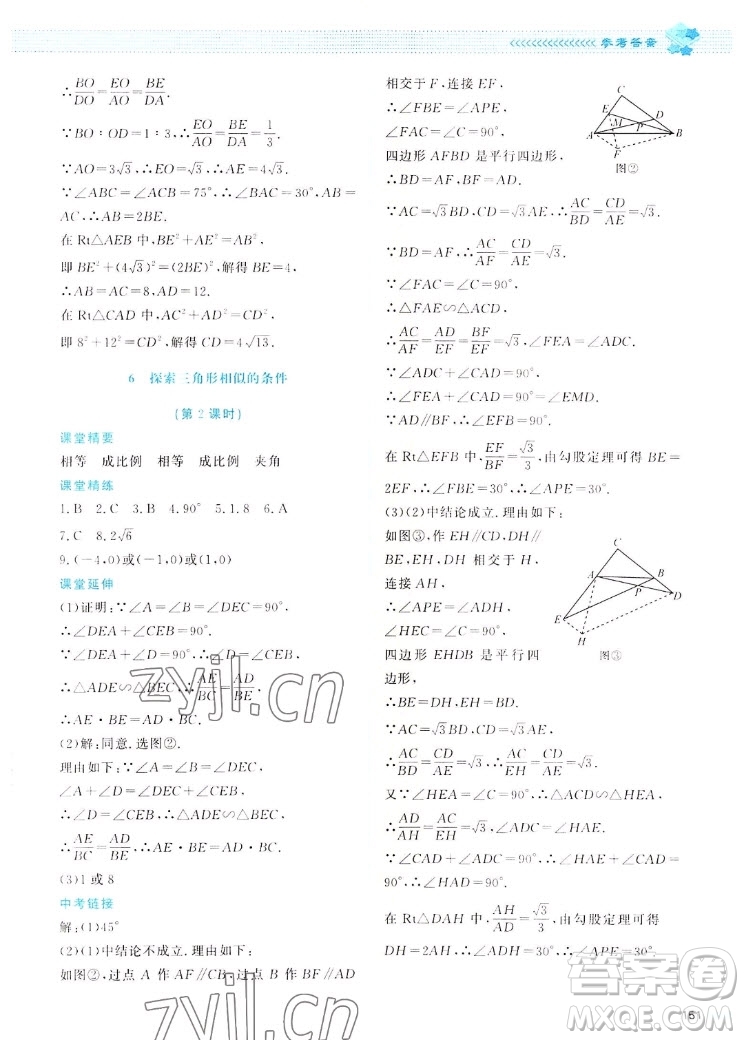 参考答案
∴BO/DO=EO/AO=BE/DA.
∵BO∶OD=1∶3,∴EO/AO=BE/DA=1/3.
∵AO=3√3,∴EO=√3,∴AE=4√3.
∵∠ABC=∠ACB=75°,∴∠BAC=30°,AB=
AC,∴AB=2BE.
在Rt△AEB中,BE²+AE²=AB²,
即BE²+(4√3)²=(2BE)²,解得BE=4,
∴AB=AC=8,AD=12.
在Rt△CAD中,AC²+AD²=CD²,
即8²+12²=CD²,解得CD=4√13.
6 探索三角形相似的条件
(第2课时)
课堂精要
相等 成比例 相等 成比例 夹角
课堂精练
1.B 2.C 3.B 4.90° 5.1.8 6.A
7.C 8.2√6
9.(-4,0)或(-1,0)或(1,0)
课堂延伸
(1)证明:∵∠A=∠B=∠DEC=90°,
∴∠DEA+∠CEB=90°.
∵∠DEA+∠D=90°,∴∠D=∠CEB,
∴△ADE∽△BEC,∴AE/BC=AD/BE,
∴AE·BE=AD·BC.
(2)解:同意.选图②.
理由如下:∵∠A=∠B=∠DEC,
∠A+∠D=∠DEC+∠CEB,
∴∠D=∠CEB,∴△ADE∽△BEC,
∴AE/BC=AD/BE,∴AE·BE=AD·BC.
(3)1或8
中考链接
解:(1)45°
(2)(1)中结论不成立.理由如下:
如图②,过点A作AF∥CD,过点B作BF∥AD
相交于F,连接EF,
∴∠FBE=∠APE,
∠FAC=∠C=90°,
四边形AFBD是平行四边形,
∴BD=AF,BF=AD.
C
E
M
D
P
A
B
F
图②
∵AC=√3BD,CD=√3AE,∴AC/BD=CD/AE=√3.
∵BD=AF,∴AC/AF=CD/AE=√3.
∵∠FAC=∠C=90°,
∴△FAE∽△ACD,
∴AC/AF=AD/EF=BF/EF=√3,∠FEA=∠ADC.
∵∠ADC+∠CAD=90°,
∴∠FEA+∠CAD=90°,
∴∠FEA+∠CAD=90°=∠EMD.
∵AD∥BF,∴∠EFB=90°.
在Rt△EFB中,EF/BF=√3/3,由勾股定理可得BE=
2EF,∴∠FBE=30°,∴∠APE=30°.
(3)(2)中结论成立.理由如下:
如图③,作EH∥CD,DH∥
BE,EH,DH相交于H,
连接AH,
∴∠APE=∠ADH,
∠HEC=∠C=90°,
四边形EHDB是平行四
边形,
C
A
B
P
D
E
H
图③
∴BE=DH,EH=BD.
∵AC=√3BD,CD=√3AE,
∴AC/BD=CD/AE=√3,∴AC/EH=CD/AE=√3.
又∵∠HEA=∠C=90°,∴△ACD∽△HEA,
∴AD/AH=AC/EH=√3,∠ADC=∠HAE.
∵∠CAD+∠ADC=90°,∴∠HAE+∠CAD=90°,
∴∠HAD=90°.
在Rt△DAH中,AH/AD=√3/3,由勾股定理可得
DH=2AH,∴∠ADH=30°,∴∠APE=30°.
zyjl.cn
zyjl.cn
答案圈
MXQE.COM
151